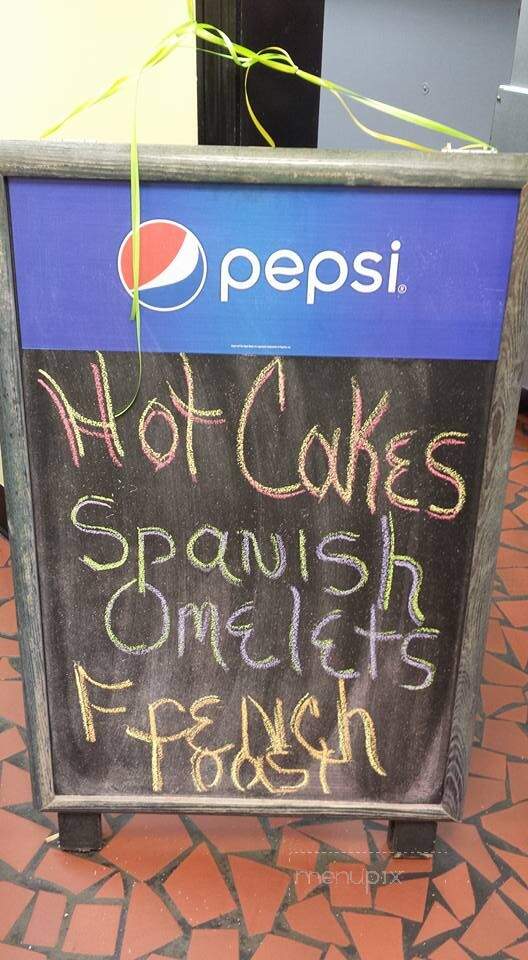 pepsi
Hot Cakes
Spanish
Omelets
French
Toast
menupix